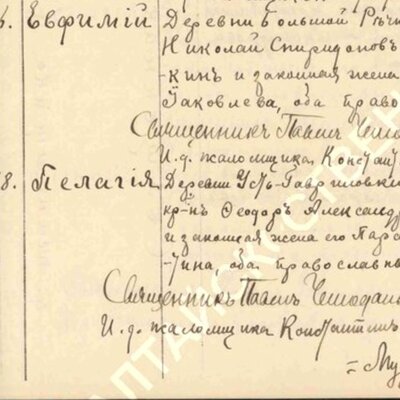 Евфимій
Деревни Большой Рѣчи
Николай Спиридоновъ
-кинъ и законная жена
Яковлева, оба право
Священникъ Павелъ Чемод
И. д. псаломщика Констан
8. Пелагія
Деревни Усть-Гавриловки
кр-нъ Ѳеодоръ Александр
и законная жена его Пара
-гина, оба православны
Священникъ Павелъ Чемодан
И. д. псаломщика Константин